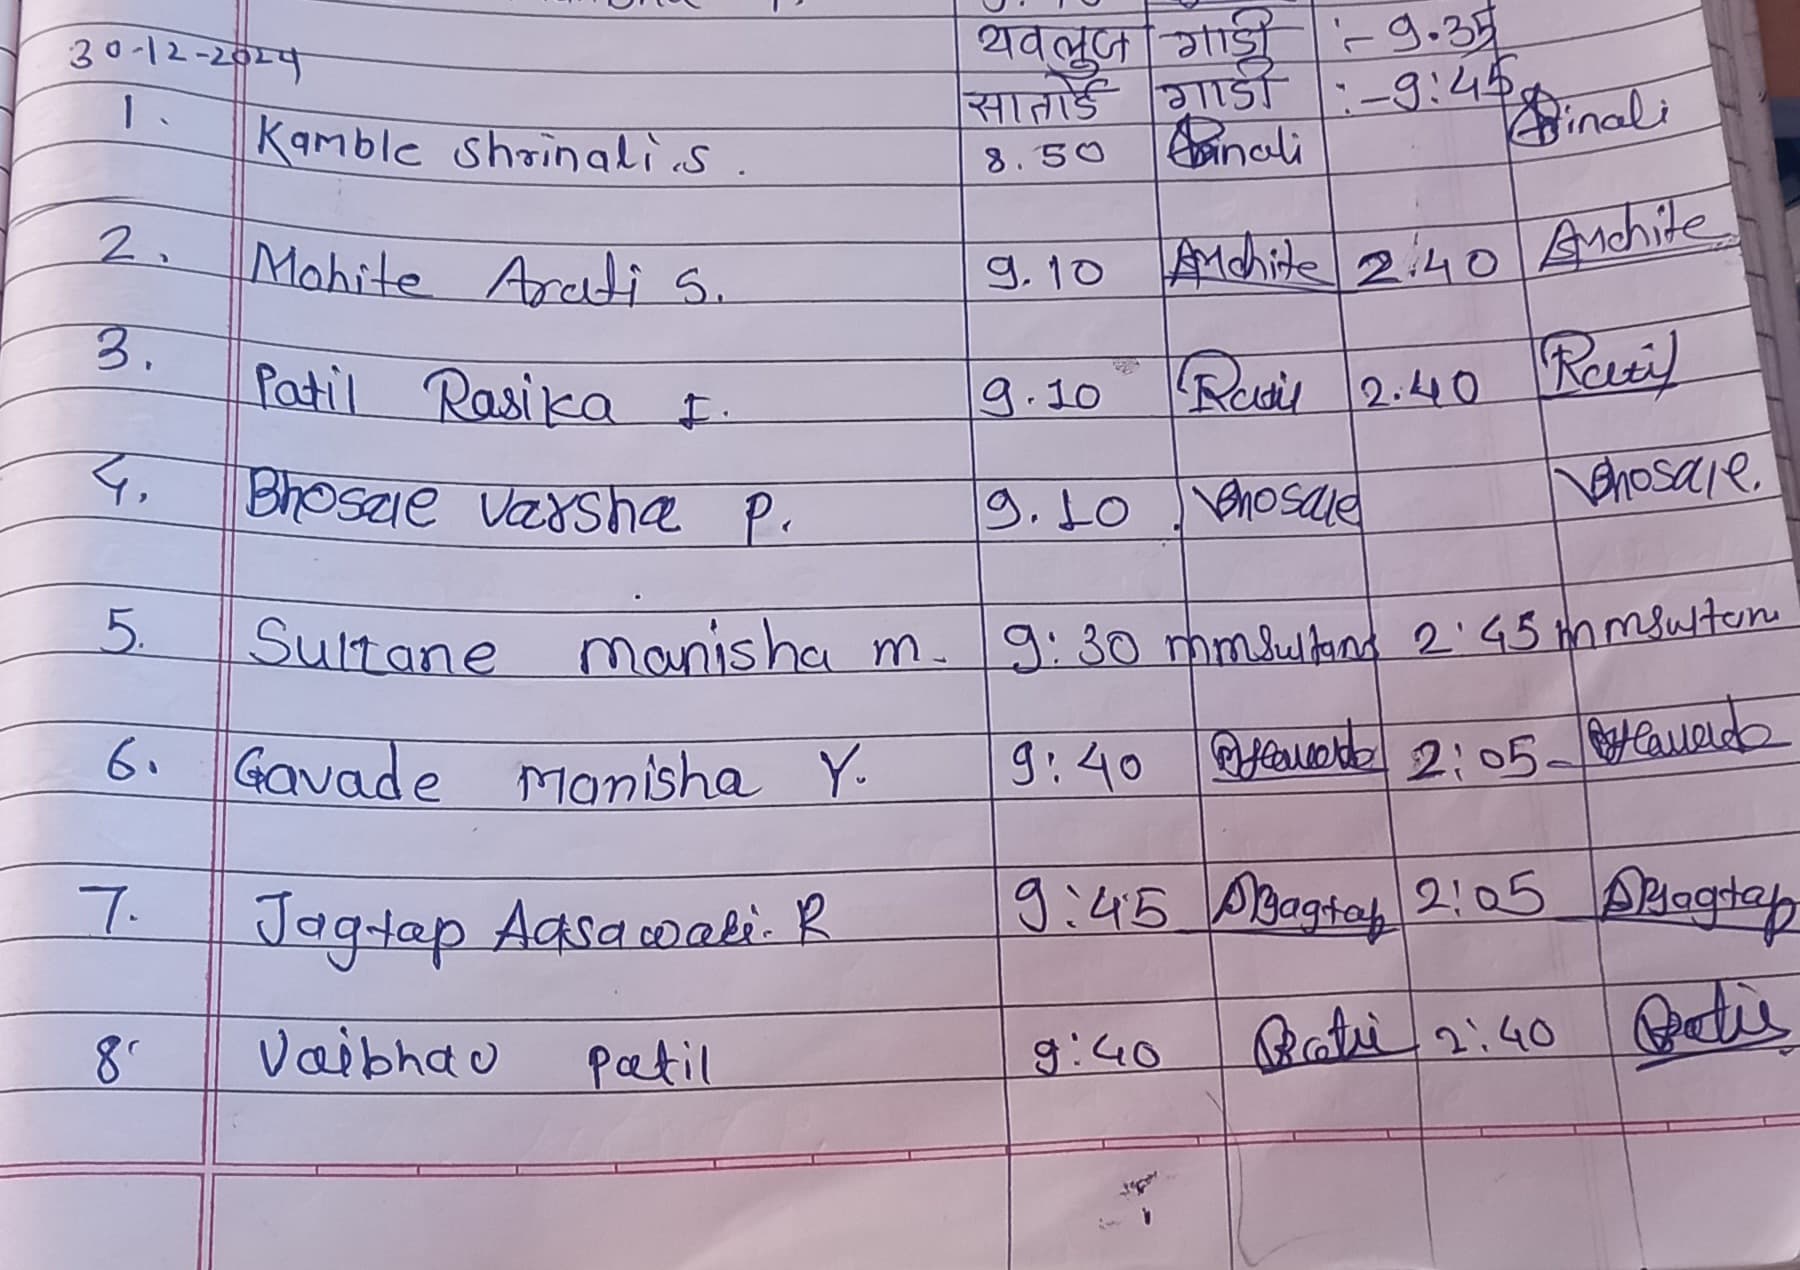 यवलुज गाडी :- 9.35
30-12-2024
सातार्डे गाडी :- 9:45
1. Kamble Shrinali.S. 8.50
2. Mohite Arati S. 9.10 AMohite 2:40 AMohite
3. Patil Rasika I. 9.10 RPatil 2.40 RPatil
4. Bhosale Varsha P. 9.10 VBhosale VBhosale.
5. Sultane Manisha M. 9:30 mmSultane 2:45 mmSultane
6. Gavade Manisha Y. 9:40 2:05
7. Jagtap R 9:45 Jagtap 2:05 Jagtap
8. Vaibhav Patil 9:40 2:40